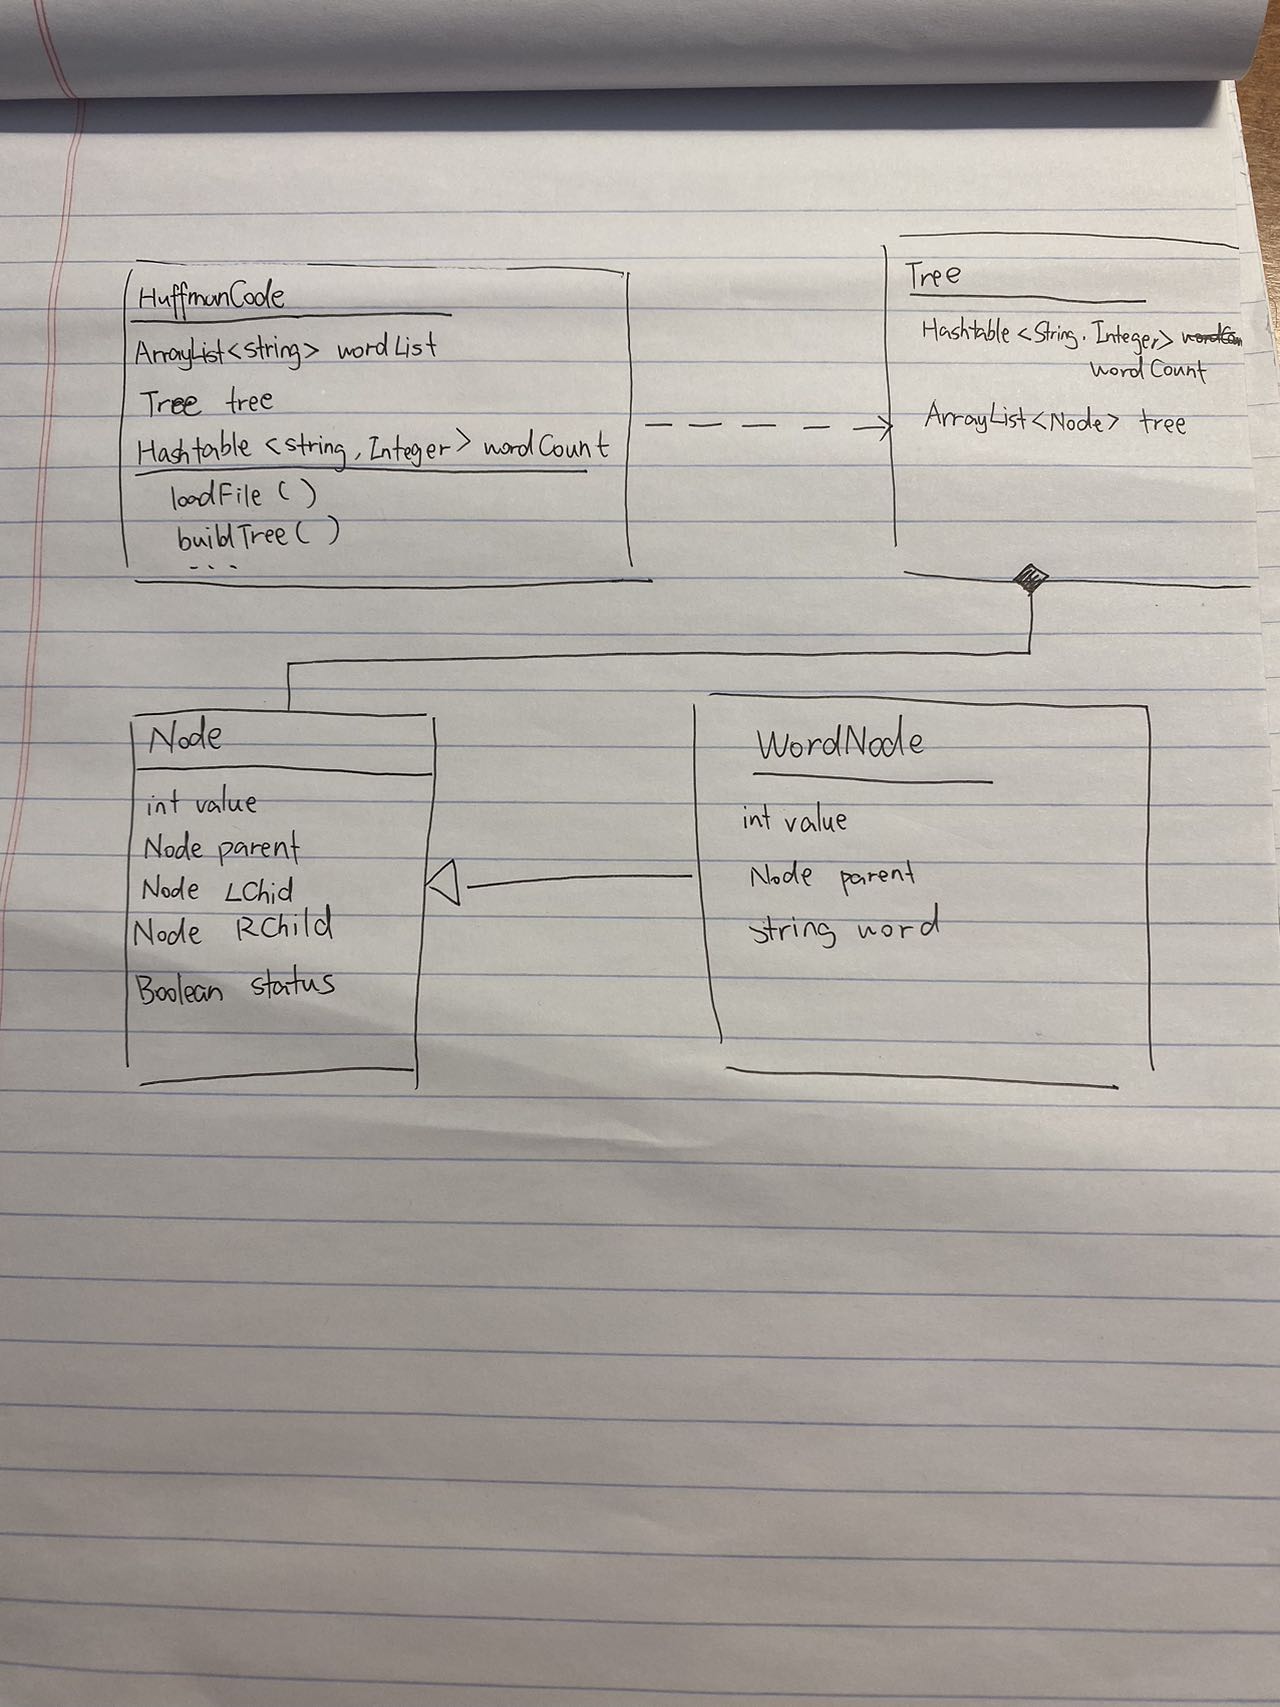 HuffmanCode
ArrayList<String> wordList
Tree tree
Hashtable <string, Integer> wordCount
loadFile ( )
buildTree ( )
...
Tree
Hashtable <String. Integer>
wordCount
ArrayList<Node> tree
Node
int value
Node parent
Node LChid
Node RChild
Boolean status
WordNode
int value
Node parent
string word